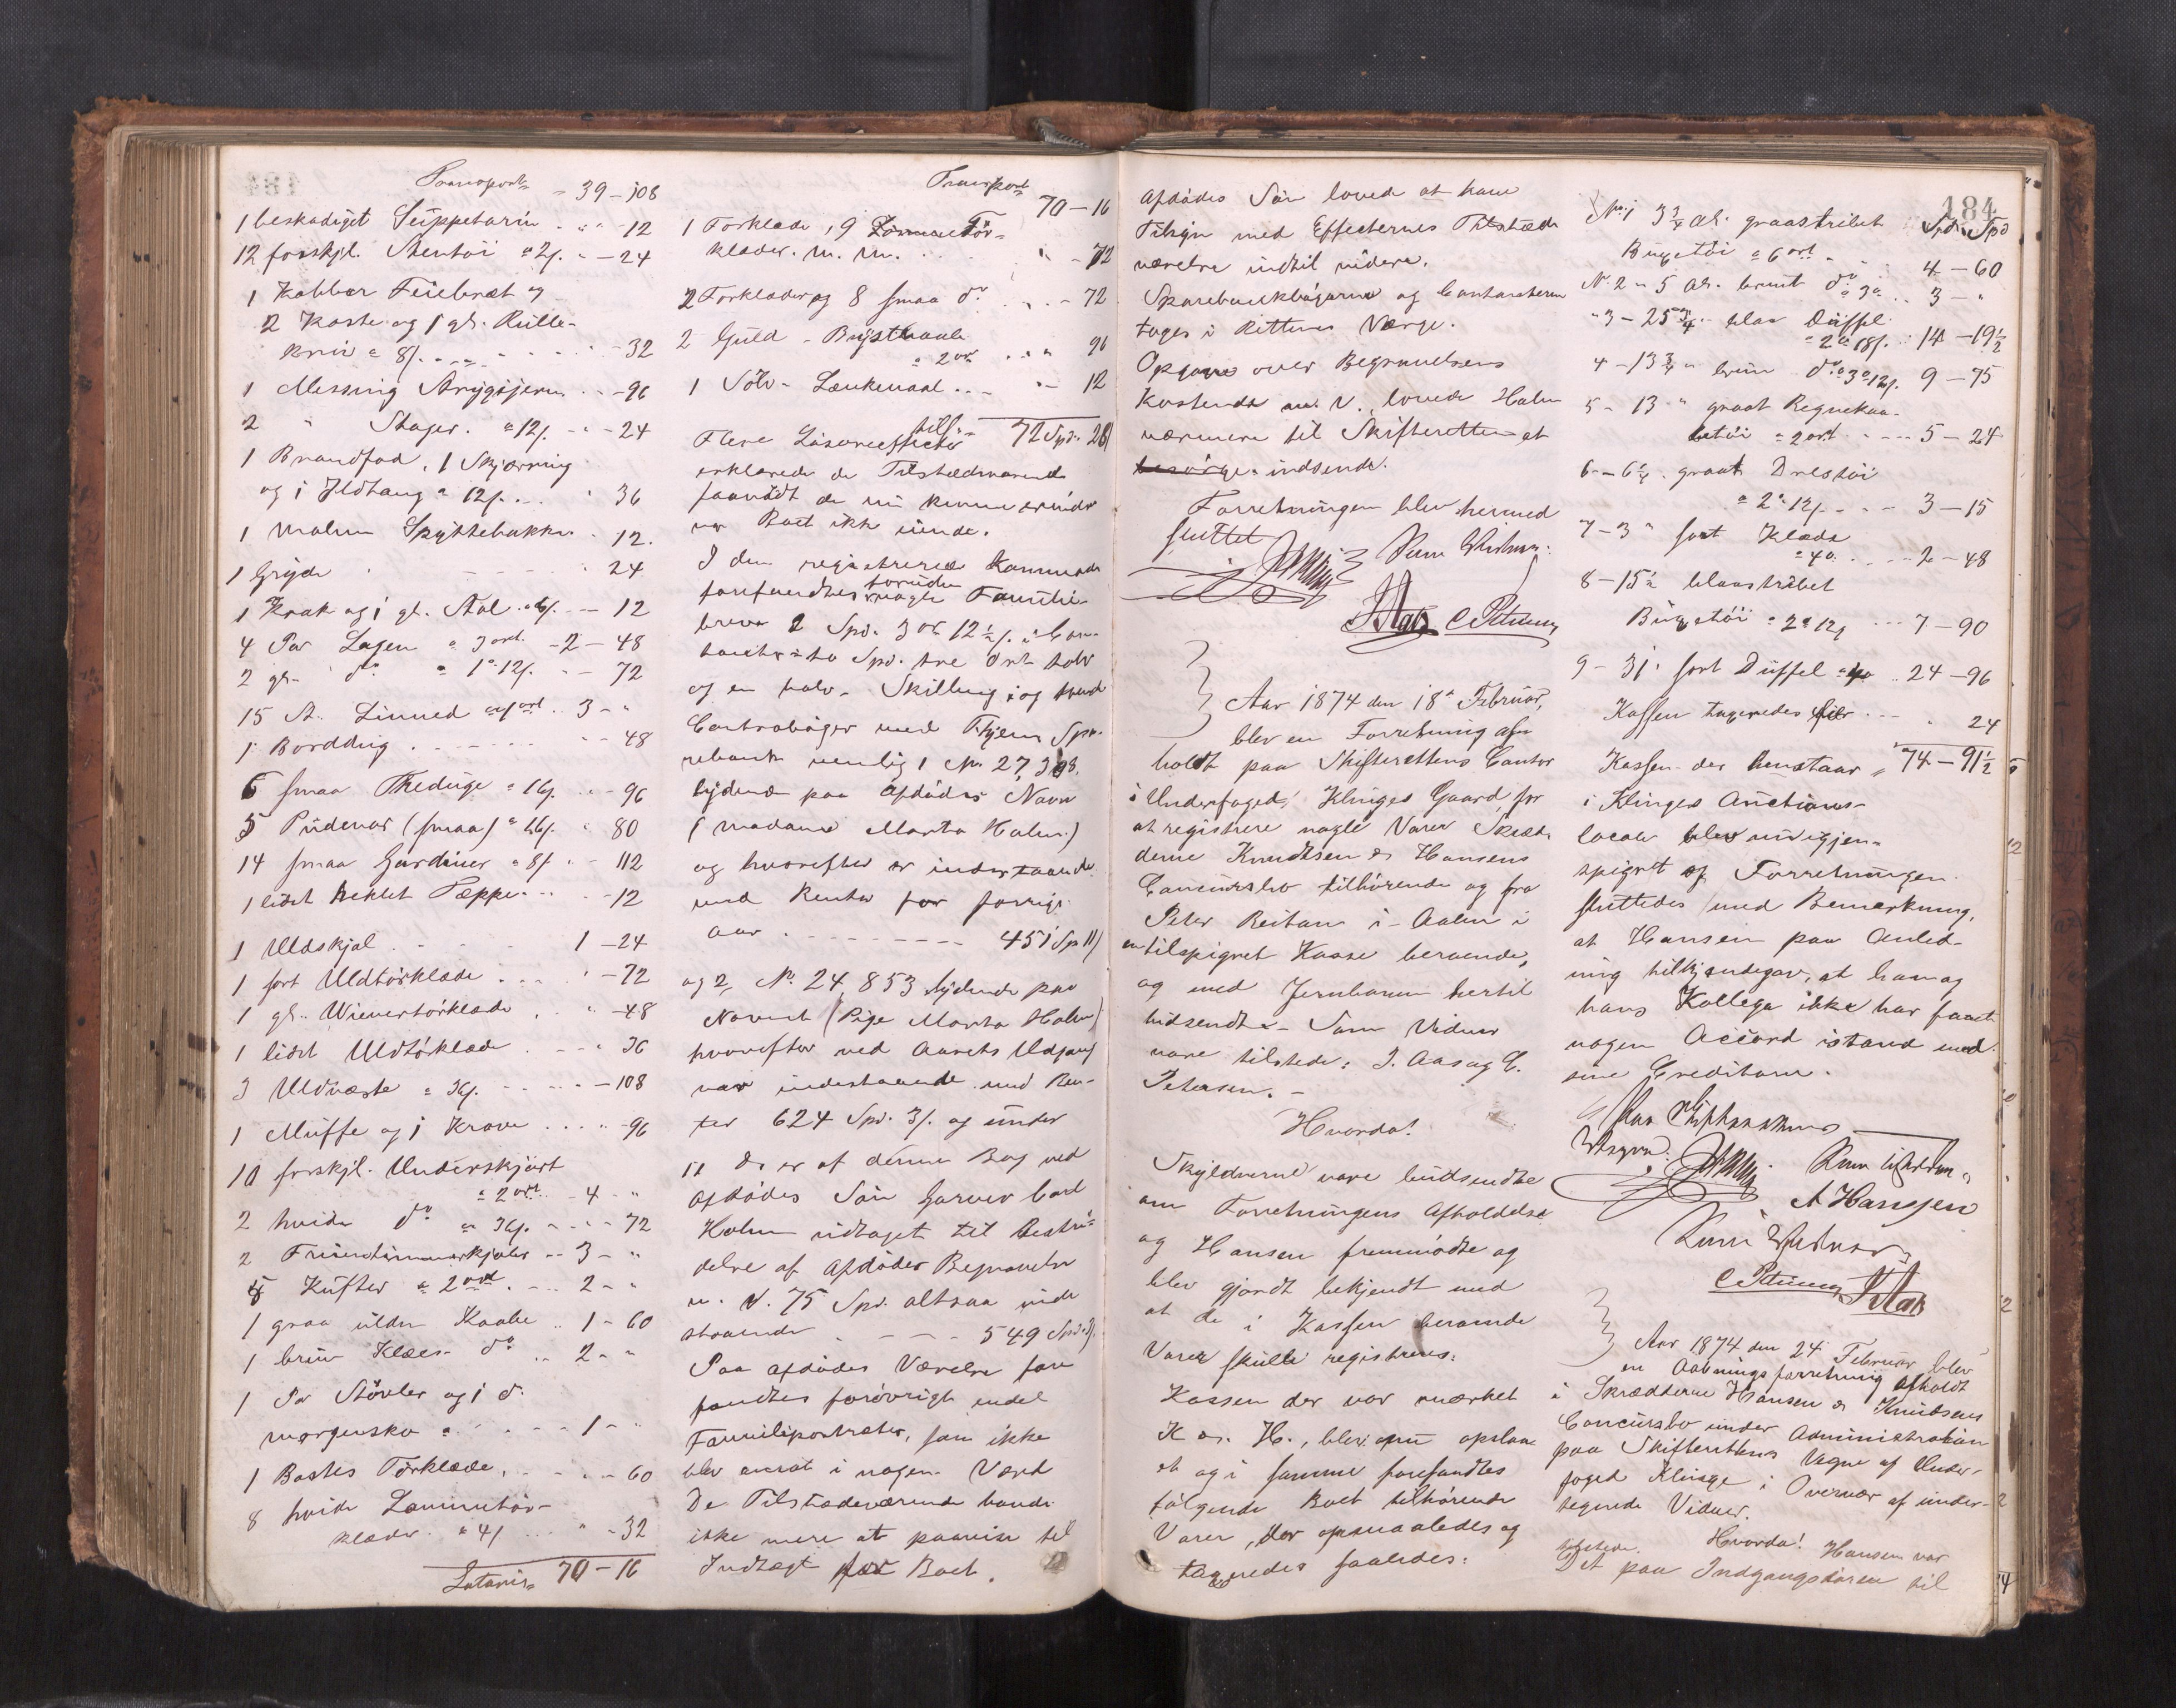 Transport " 39-108
1 beskadiget Suppeterin . " " 12
12 forskjl. Stentøi a 2/. " - 24
1 Kobber Feiebræt og
2 Koste og 1 gl. Rulle-
kniv a 8/. - 32
1 Messing Strygejern . . - 96
2 " Stager. a 12/. - - 24
1 Brandfad, 1
og 1 Ildtang a 12/. . . " 36
1 Malm Spyttebakke . 12.
1 Gryde . - - - - " 24
1 Krak og 1 gl. Stol - 12
4 Par Lagen a 3 ort. - 2 - 48
2 gl. do a 1 a 12/. - - 72
15 St. Linned a 1 ort .. 3 - "
1 Borddug . - - - - - 48
6 smaa Theduge a 16/. - 96
5 Pudevar (smaa) a 16/. " 80
14 smaa Gardiner a 8/. " - 112
1 lidet heklet Tæppe - - - 12
1 Uldskjal . - - 1 - 24
1 sort Uldtørklæde . . . " - 72
1 gl. Wienertørklæde . " - 48
1 lidet Uldtørklæde . - - " 36
3 Uldveste a 36/. - - - - - 108
1 Muffe og 1 Krave . . . " - 96
10 forskjl. Underskjørt
a 2 ort. - 4 - "
2 hvide do a 36/. - - - 72
2 Fruentimmerkjoler - 3 - "
5 Kufter a 2 ort. - .. 2 - "
1 graa ulden Kaabe .. 1 - 60
1 brun Klædes do .. 2 - "
1 Par Støvler og 1 d.
morgensko " - - - 1 - "
1 Bastes Tørklæde, - . . - 60
8 hvide Lommetør-
klæder. a 4/ . . . " - 32
Lateris 70 - 16
Transport 70 - 16
1 Forklæde, 9 Lommetør-
klæder. m. m. . . . " - 72
2 Forklæder og 8 smaa do . . - 72
2 Guld - Brystnaale
a 2 ort . . " 96
1 Sølv - Lænkenaal . . - " - 12
tils. 72 Spd. 28/
Flere Løsøreeffecter
erklærede de Tilstædeværende
saavidt de nu kunne erindre
var Boet ikke eiende.
I den registrerede Kommode
forefandtes foruden nogle Familie-
breve 2 Spd. 3 ort 12 1/2/. i Con-
tanter - to Spd. tre Ort tolv
og en halv - Skilling; og tvende
Contrabøger med Spa-
rebank nemlig 1 No 27,308.
lydende paa Afdødes Navn
(Madame Marta Holm)
og hvorefter er indestaaende
med Renter for forrige
Aar . - - - - - - - 451 Sp 11/
og 2, No. 24,853 lydende paa
Navnet (Pige Marta Holm)
hvorefter ved Aarets Udgang
var indestaaende med Ren-
ter 624 Spd. 3/. og under
ds er af denne Bog ved
Afdødes Søn Garver Carl
Holm udtaget til Bestri-
delse af Afdødes Begravelse
m. V. 75 Spd. altsaa inde
staaende . - - - 549 Spd 3/.
Paa afdødes Værelse fore
fandtes forøvrigt endel
Familieportræter, som ikke
blev ansat i nogen Værd
De Tilstædeværende havde
ikke mere at paavise til
Indtægt for Boet.
Afdødes Søn loved at have
Tilsyn med Effecternes Tilstæde
værelse indtil videre.
Sparebankbøgerne og Contanterne
toges i Rettens Værge.
Opgave over Begravelsens
Kostende m. V., lovede Holm
nærmere til Skifteretten at
besørge indsende.
Forretningen blev hermed
sluttet
Som Vidner:
J Aas C Petersen
Aar 1874 den 18de Februar,
blev en Forretning af-
holdt paa Skifterettens Contor
i Underfoged Klinges Gaard for
at registrere nogle Varer Skræd-
derne Knudtsen & Hansens
Concursbo tilhørende og fra
Peter Reitan i Aalen i
en tilspigret Kasse beroende,
og med Jernbanen hertil
hidsendt. - Som Vidner
vare tilstede: J. Aas og C.
Petersen. -
Hvorda!
Skyldnerne vare budsendte
om Forretningens Afholdelse
og Hansen fremmødte og
blev gjordt bekjendt med
at de i Kassen beroende
Varer skulle registreres:
Kassen der var mærket
K. & H., blev nu opslaa-
et og i samme forefandtes
følgende Boet tilhørende
Varer, der opmaaledes og
taxeredes saaledes:
184
No. 1 3 3/4 Al. graastribet Spd. Spd
Buxetøi a 6 ort - " 4 - 60
No. 2 - 5 Al. brunt do a 3 .. 3 - "
" 3 - 25 3/4 " blaa Düffel
a 2 a 18/. " 14 - 19 1/2
4 - 13 3/4 " brun do a 3 a 12/. 9 - 75
5 - 13 " graat Regnekaa-
betøi a 2 ort . - - - 5 - 24
6 - 6 1/4 . graat Drestøi
a 2 a 12/. - - - 3 - 15
7 - 3 " sort Klæde
a 4 o. . . - 2 - 48
8 - 15 1/2 blaastribet
Buxetøi a 2 a 12/ - - - 7 - 90
9 - 31. sort Düffel a 4 o .. 24 - 96
Kassen taxeredes for - - . 24
74 - 91 1/2
Kassen der henstaar
i Klinges Auctions-
locale blev nu igjen-
spigret og Forretningen
sluttedes med Bemærkning,
at Hansen paa Anled-
ning tilkjendegav, at han og
hans Kollega ikke har faaet
nogen Accord istand med
sine Creditorer.
A Hansen
Som Vidner:
C Petersen J Aas
Aar 1874 den 24 Februar blev
en Aabningsforretning afholdt
i Skrædderne Hansen & Knudsens
Concursbo under Administration
paa Skifterettens Vegne af Under-
foged Klinge i Overvær af under-
tegnede Vidner.
Hvorda! Hansen var
tilstede.
Det paa Indgangsdøren til